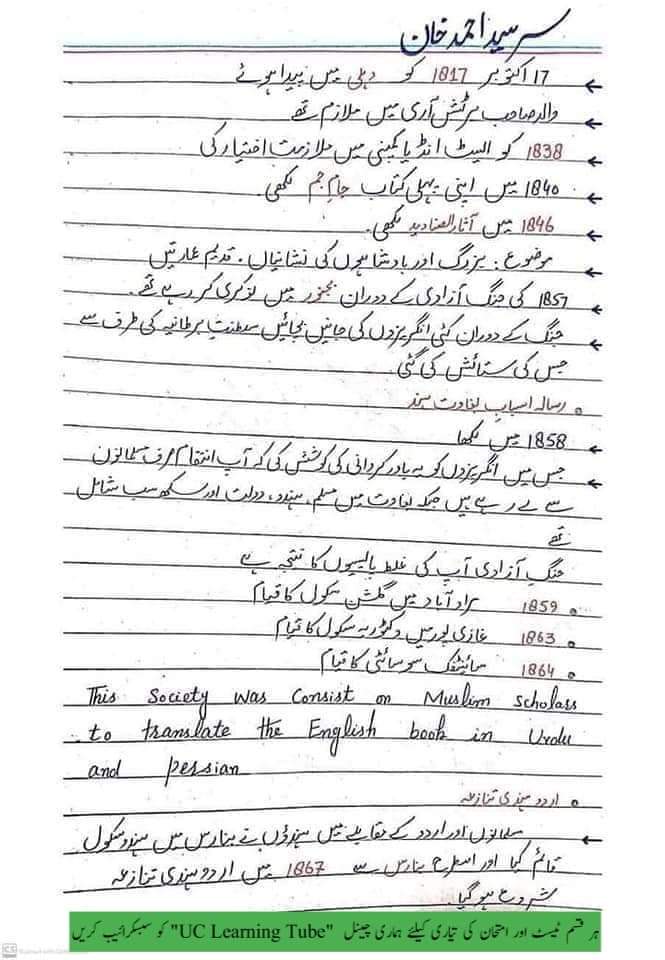 سر سید احمد خان
17 اکتوبر 1817 کو دہلی میں پیدا ہوئے
والد صاحب برٹش آرمی میں ملازم تھے
1838 کو ایسٹ انڈیا کمپنی میں ملازمت اختیار کی
1840 میں اپنی پہلی کتاب جام جم لکھی
1846 میں آثار الصنادید لکھی۔
موضوع: بزرگ اور بادشاہوں کی نشانیاں۔ قدیم عمارتیں
1857 کی جنگ آزادی کے دوران بجنور میں نوکری کر رہے تھے۔
جنگ کے دوران کئی انگریزوں کی جانیں بچائیں سلطنت برطانیہ کی طرف سے
جس کی ستائش کی گئی
رسالہ اسباب بغاوت ہند
1858 میں لکھا
جس میں انگریزوں کو یہ باور کروانے کی کوشش کی کہ آپ انتقام صرف مسلمانوں
سے لے رہے ہیں جبکہ بغاوت میں مسلم، ہندو، دولت اور سکھ سب شامل
تھے
جنگ آزادی آپ کی غلط پالیسیوں کا نتیجہ ہے
1859 مراد آباد میں گلشن سکول کا قیام
1863 غازی پور میں وکٹوریہ سکول کا قیام
1864 سائنٹفک سوسائٹی کا قیام
This Society was Consist on Muslim Scholars
to translate the English book in Urdu
and persian
اردو ہندی تنازعہ
مسلمانوں اور اردو کے مقابلے میں ہندوؤں نے بنارس میں ہندو سکول
قائم کیا اور اسطرح بنارس سے 1867 میں اردو ہندی تنازعہ
شروع ہو گیا۔
ہر قسم ٹیسٹ اور امتحان کی تیاری کیلئے ہماری چینل "UC Learning Tube" کو سبسکرائیب کریں
CS Scanned with CamScanner